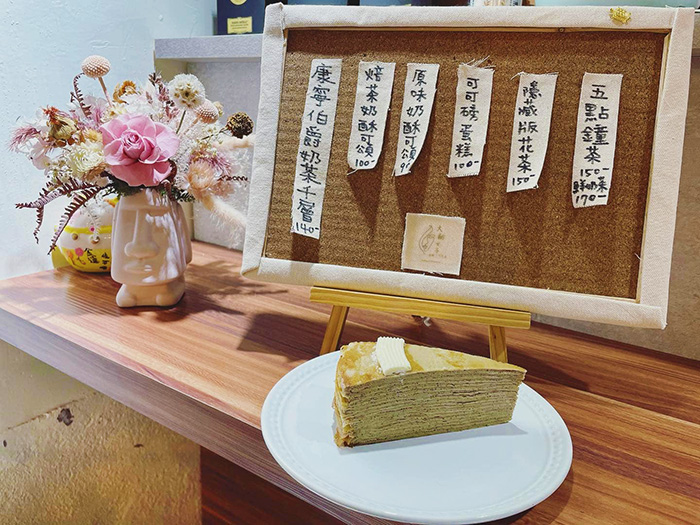 康寧伯爵奶茶千層
140-
焙茶奶酥可頌
100-
原味奶酥可頌
可可磅蛋糕
100-
隱藏版花茶
150-
五點鐘茶
150-
鮮奶茶
170-